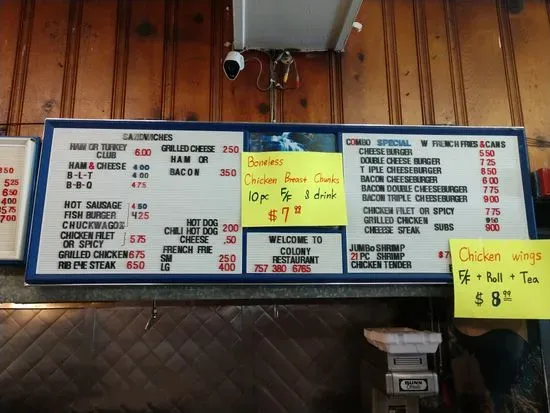 850
5.25
6.50
4.50
5.75
7.75
SANDWICHES
HAM OR TURKEY
CLUB 6.00
HAM & CHEESE 4.00
B-L-T 4.00
B-B-Q 4.75
HOT SAUSAGE 4.50
FISH BURGER 4.25
CHUCKWAGO
CHICKEN FILET
OR SPICY 5.75
GRILLED CHICKEN 6.75
RIB EYE STEAK 6.50
GRILLED CHEESE 2.50
HAM OR
BACON 3.50
HOT DOG 2.00
CHILI HOT DOG
CHEESE .50
FRENCH FRIE
SM 2.50
LG 4.00
Boneless
Chicken Breast Chunks
10pc F/F & drink
$ 7.99
WELCOME TO
COLONY
RESTAURANT
757 380 6765
COMBO SPECIAL W FRENCH FRIES & CANS
CHEESEBURGER 5.50
DOUBLE CHEESEBURGER 7.25
T IPLE CHEESEBURGER 8.75
BACON CHEESEBURGER 6.00
BACON DOUBLE CHEESEBURGER 7.75
BACON TRIPLE CHEESEBURGER 9.00
CHICKEN FILET OR SPICY 7.75
GRILLED CHICKEN 9.50
CHEESE STEAK SUBS 9.00
JUMBO SHRIMP
21 PC SHRIMP $7
CHICKEN TENDER
Chicken wings
F/F + Roll + Tea
$ 8.99
BUNN